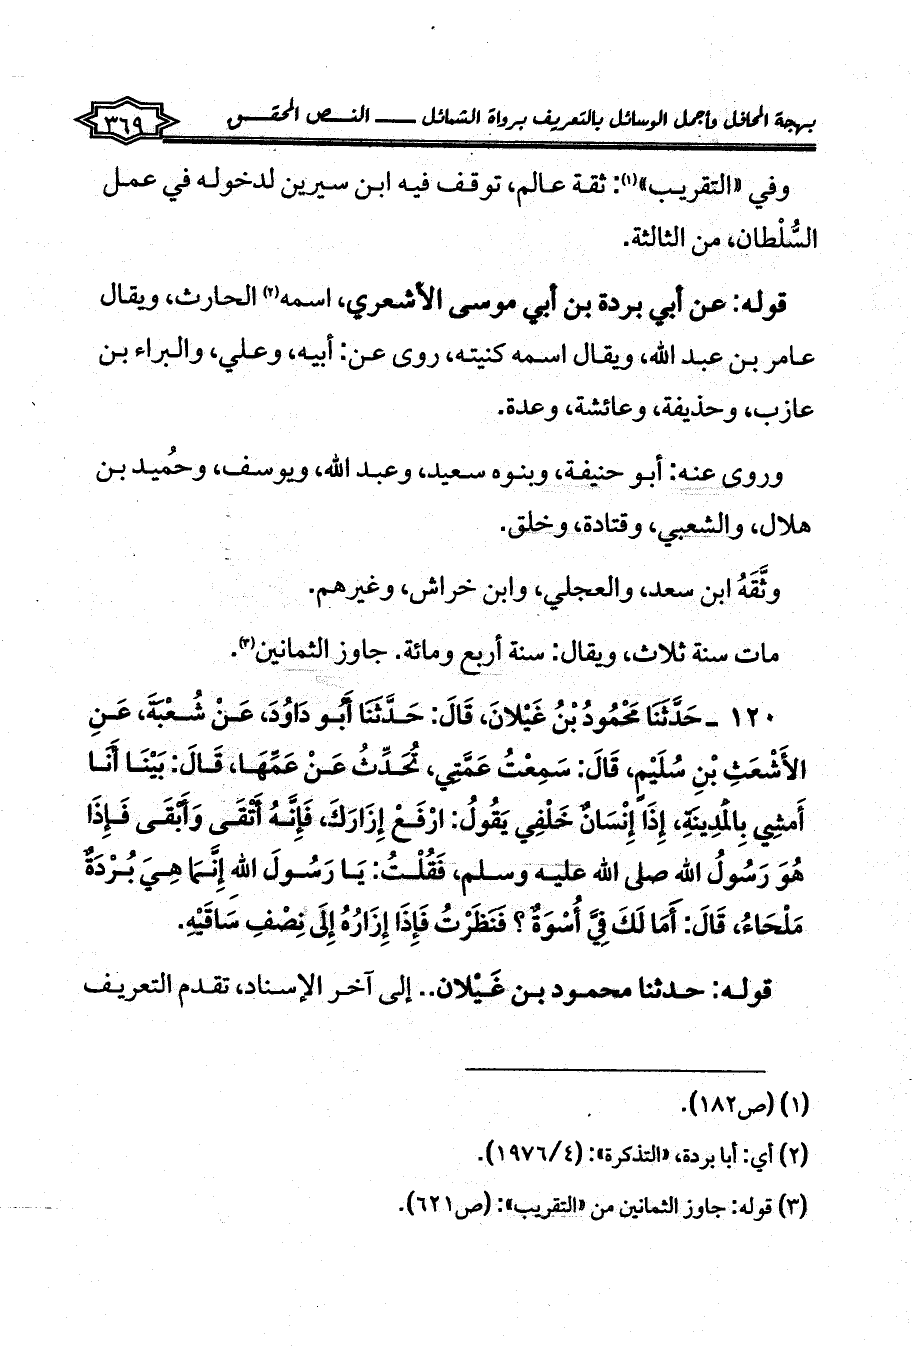 بهجة المحافل وأجمل الوسائل بالتعريف برواة الشمائل ـــــ النص المحقق
٣٦٩
وفي «التقريب»(١): ثقة عالم، توقف فيه ابن سيرين لدخوله في عمل
السُّلْطان، من الثالثة.
قوله: عن أبي بردة بن أبي موسى الأشعري، اسمه(٢) الحارث، ويقال
عامر بن عبد الله، ويقال اسمه كنيته، روى عن: أبيه، وعلي، والبراء بن
عازب، وحذيفة، وعائشة، وعدة.
وروى عنه: أبو حنيفة، وبنوه سعيد، وعبد الله، ويوسف، وحُميد بن
هلال، والشعبي، وقتادة، وخلق.
وثَّقَهُ ابن سعد، والعجلي، وابن خراش، وغيرهم.
مات سنة ثلاث، ويقال: سنة أربع ومائة. جاوز الثمانين(٣).
١٢٠ ـ حَدَّثَنَا مَحْمُودُ بْنُ غَيْلانَ، قَالَ: حَدَّثَنَا أَبُو دَاوُدَ، عَنْ شُعْبَةَ، عَنِ
الأَشْعَثِ بْنِ سُلَيْمٍ، قَالَ: سَمِعْتُ عَمَّتِي، تُحَدِّثُ عَنْ عَمِّهَا، قَالَ: بَيْنَا أَنَا
أَمشِي بِالْمَدِينَةِ، إِذَا إِنْسَانٌ خَلْفِي يَقُولُ: ارْفَعْ إِزَارَكَ، فَإِنَّهُ أَتْقَى وَأَبْقَى فَإِذَا
هُوَ رَسُولُ الله صلى الله عليه وسلم، فَقُلْتُ: يَا رَسُولَ اللهِ إِنَّمَا هِيَ بُرْدَةٌ
مَلْحَاءُ، قَالَ: أَمَا لَكَ فِيَّ أُسْوَةٌ؟ فَنَظَرْتُ فَإِذَا إِزَارُهُ إِلَى نِصْفِ سَاقَيْهِ.
قوله: حدثنا محمود بن غَيْلان.. إلى آخر الإسناد، تقدم التعريف
(١) (ص١٨٢).
(٢) أي: أبا بردة، «التذكرة»: (١٩٧٦/٤).
(٣) قوله: جاوز الثمانين من «التقريب»: (ص٦٢١).